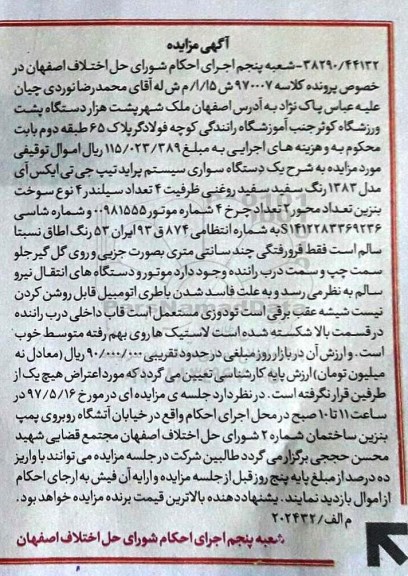 آگهی مزایده
۳۸۲۹۰/۴۴۱۳۲-شعبه پنجم اجرای احکام شورای حل اختلاف اصفهان در
خصوص پرونده کلاسه ۹۷۰۰۰۷ ش ۱/۵/ا م ش له آقای محمدرضا نوردی چیان
علیه عباس پاک نژاد به آدرس اصفهان ملک شهر پشت هزار دستگاه پشت
ورزشگاه کوثر جنب آموزشگاه رانندگی کوچه فولادگر پلاک ۶۵ طبقه دوم بابت
محکوم به و هزینه های اجرایی به مبلغ ۱۱۵/۰۲۳/۳۸۹ ریال اموال توقیفی
مورد مزایده به شرح یک دستگاه سواری سیستم پراید تیپ جی تی ایکس آی
مدل ۱۳۸۳ رنگ سفید سفید روغنی ظرفیت ۴ تعداد سیلندر ۴ نوع سوخت
بنزین تعداد محور ۲ تعداد چرخ ۴ شماره موتور ۰۰۹۸۱۵۵۵ و شماره شاسی
S۱۴۱۲۲۸۳۳۶۹۲۳۶ به شماره انتظامی ۸۷۴ ق ۹۳ ایران ۵۳ رنگ اطاق نسبتا
سالم است فقط فرورفتگی چند سانتی متری بصورت جزیی و روی گل گیر جلو
سمت چپ و سمت درب راننده وجود دارد موتور و دستگاه های انتقال نیرو
سالم به نظر می رسد و به علت فاسد شدن باطری اتومبیل قابل روشن کردن
نیست شیشه عقب برقی است تودوزی مستعمل است قاب داخلی درب راننده
در قسمت بالا شکسته شده است لاستیک ها روی بهم رفته متوسط خوب
است . و ارزش آن در بازار روز مبلغی در حدود تقریبی ۹۰/۰۰۰/۰۰۰ ریال (معادل نه
میلیون تومان) ارزش پایه کارشناسی تعیین می گردد که مورد اعتراض هیچ یک از
طرفین قرار نگرفته است . در نظر دارد جلسه ی مزایده ای در مورخ ۹۷/۵/۱۶ در
ساعت ۱۱ تا ۱۰ صبح در محل اجرای احکام واقع در خیابان آتشگاه روبروی پمپ
بنزین ساختمان شماره ۲ شورای حل اختلاف اصفهان مجتمع قضایی شهید
محسن حججی برگزار می گردد طالبین شرکت در جلسه مزایده می توانند با واریز
ده درصد از مبلغ پایه پنج روز قبل از جلسه مزایده و ارایه آن فیش به اجرای احکام
از اموال بازدید نمایند . پیشنهاد دهنده بالاترین قیمت برنده مزایده خواهد بود .
م الف/ ۲۰۲۴۳۲
شعبه پنجم اجرای احکام شورای حل اختلاف اصفهان